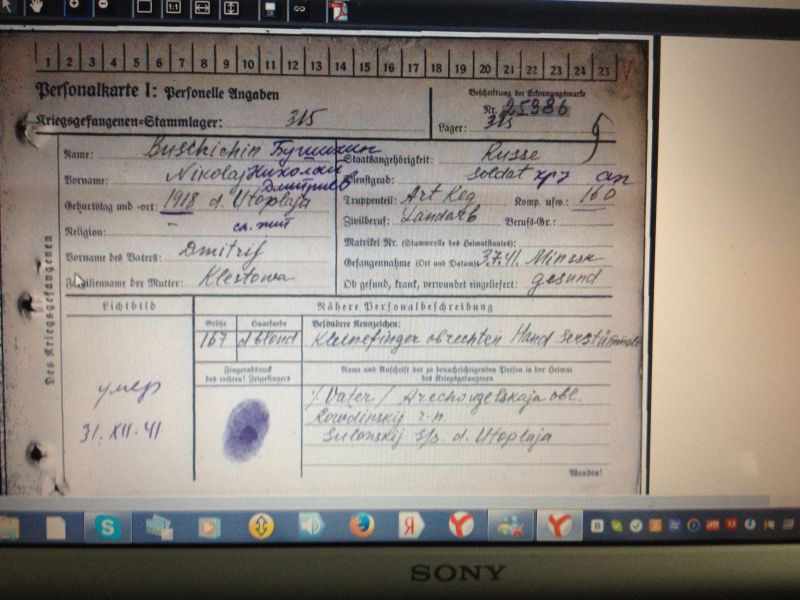 1 2 3 4 5 6 7 8 9 10 11 12 13 14 15 16 17 18 19 20 21 22 23
Personalkarte I: Personelle Angaben
Beschriftung der Erkennungsmarke
Kriegsgefangenen-Stammlager: 315
Nr. 25986
Lager: 315
Des Kriegsgefangenen
Name: Buschichin Бушихин
Vorname: Nikolaj Николай
Дмитриев
Geburtstag und -ort: 1918 d. Utoplaja
Religion: -
Vorname des Vaters: Dmitrij
Familienname der Mutter: Klestowa
Staatsangehörigkeit: Russe
Dienstgrad: Soldat
Truppenteil: Art Reg Komp. usw.: 160
Zivilberuf: Landarb Berufs-Gr.:
Matrikel Nr. (Stammrolle des Heimatstaates):
Gefangennahme (Ort und Datum): 3.7.41. Minssk
Ob gesund, krank, verwundet eingeliefert: gesund
Lichtbild
Nähere Personalbeschreibung
Größe Haarfarbe Besondere Kennzeichen:
167 d blond Kleinefinger d rechten Hand
Fingerabdruck
des rechten! Zeigefingers
Name und Anschrift der zu benachrichtigenden Person in der Heimat
des Kriegsgefangenen
умер
31.XII.41
/ Vater / Archangelskaja obl.
r-n.
S/s. d. Utoplaja
Wenden!
SONY